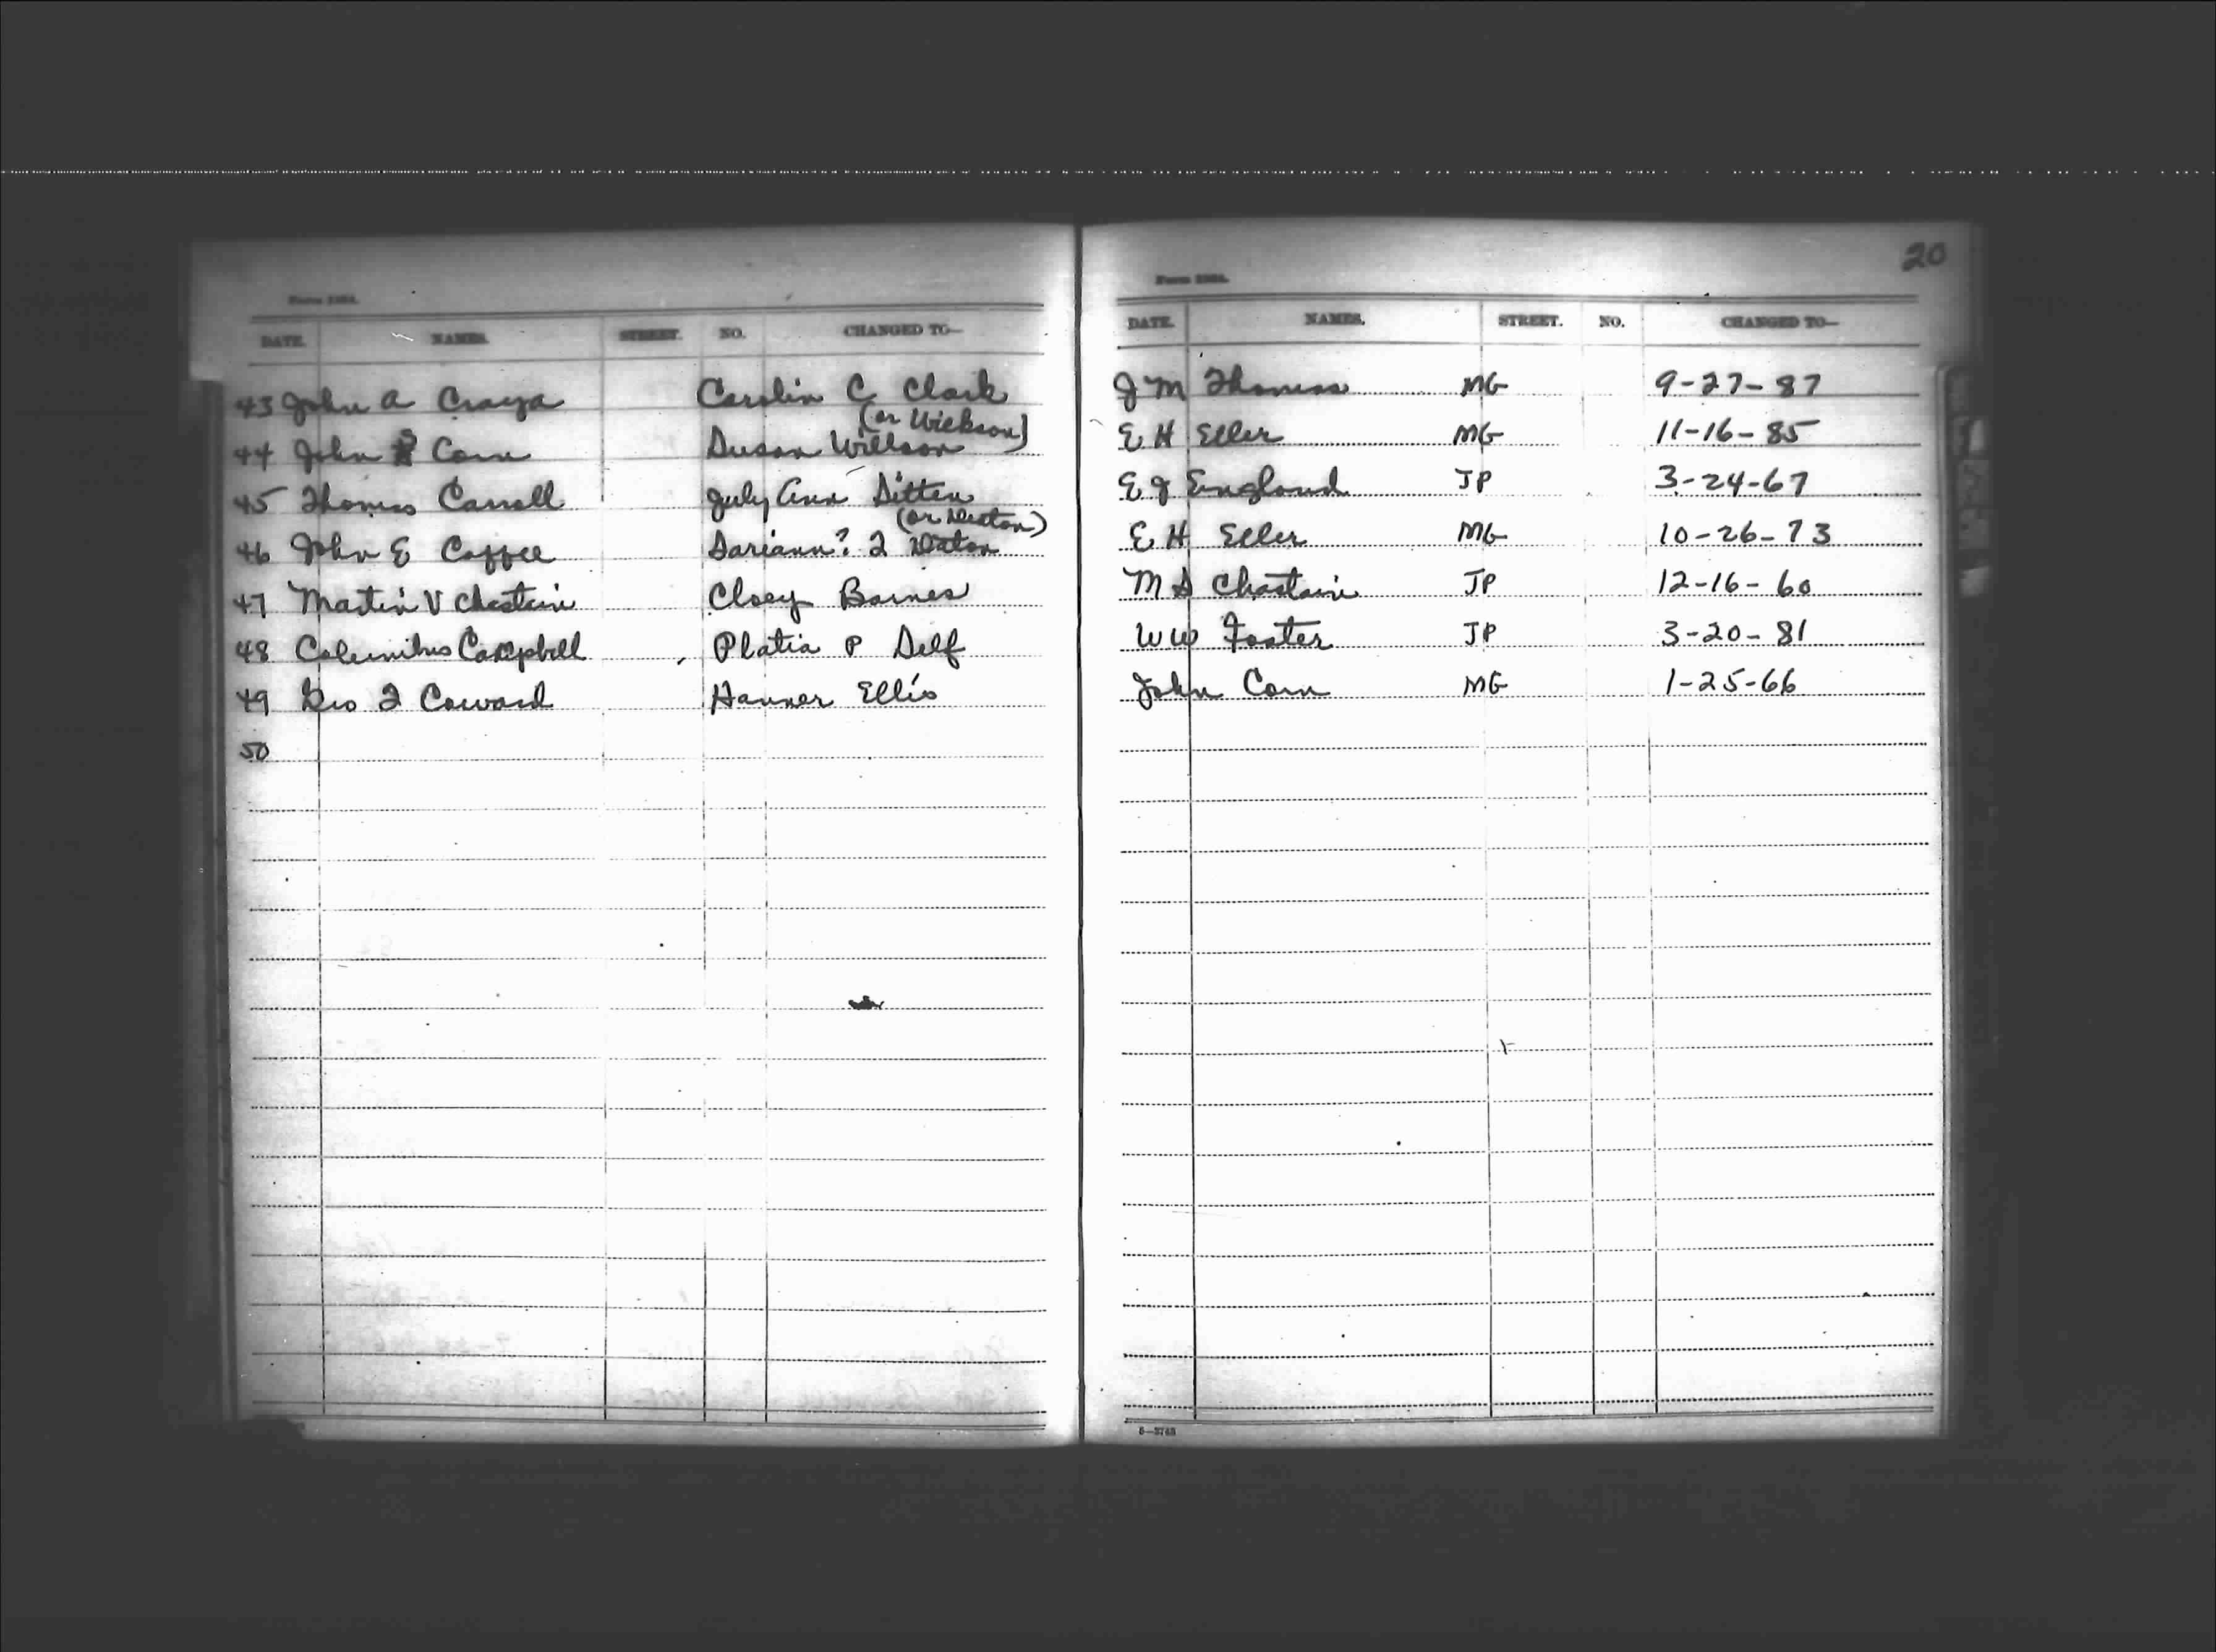 20
Form
DATE. NAMES. STREET. NO. CHANGED TO—
43 John A Craya Carolin C Clark
(or Wickson)
44 John S Corn Susan Willson
45 Thomas Carroll July Ann Sitten
(or Deaton)
46 John E Coffee Sariann? J Daton
47 Martin V Chastain Cloey Barnes
48 Columbus Campbell Platia P Self
49 Geo T Coward Hanner Ellis
50
Form
DATE. NAMES. STREET. NO. CHANGED TO—
J M Thomas MG 9-27-87
E H Eller MG 11-16-85
E J England JP 3-24-67
E H Eller MG 10-26-73
M S Chastain JP 12-16-60
W W Foster JP 3-20-81
John Corn MG 1-25-66